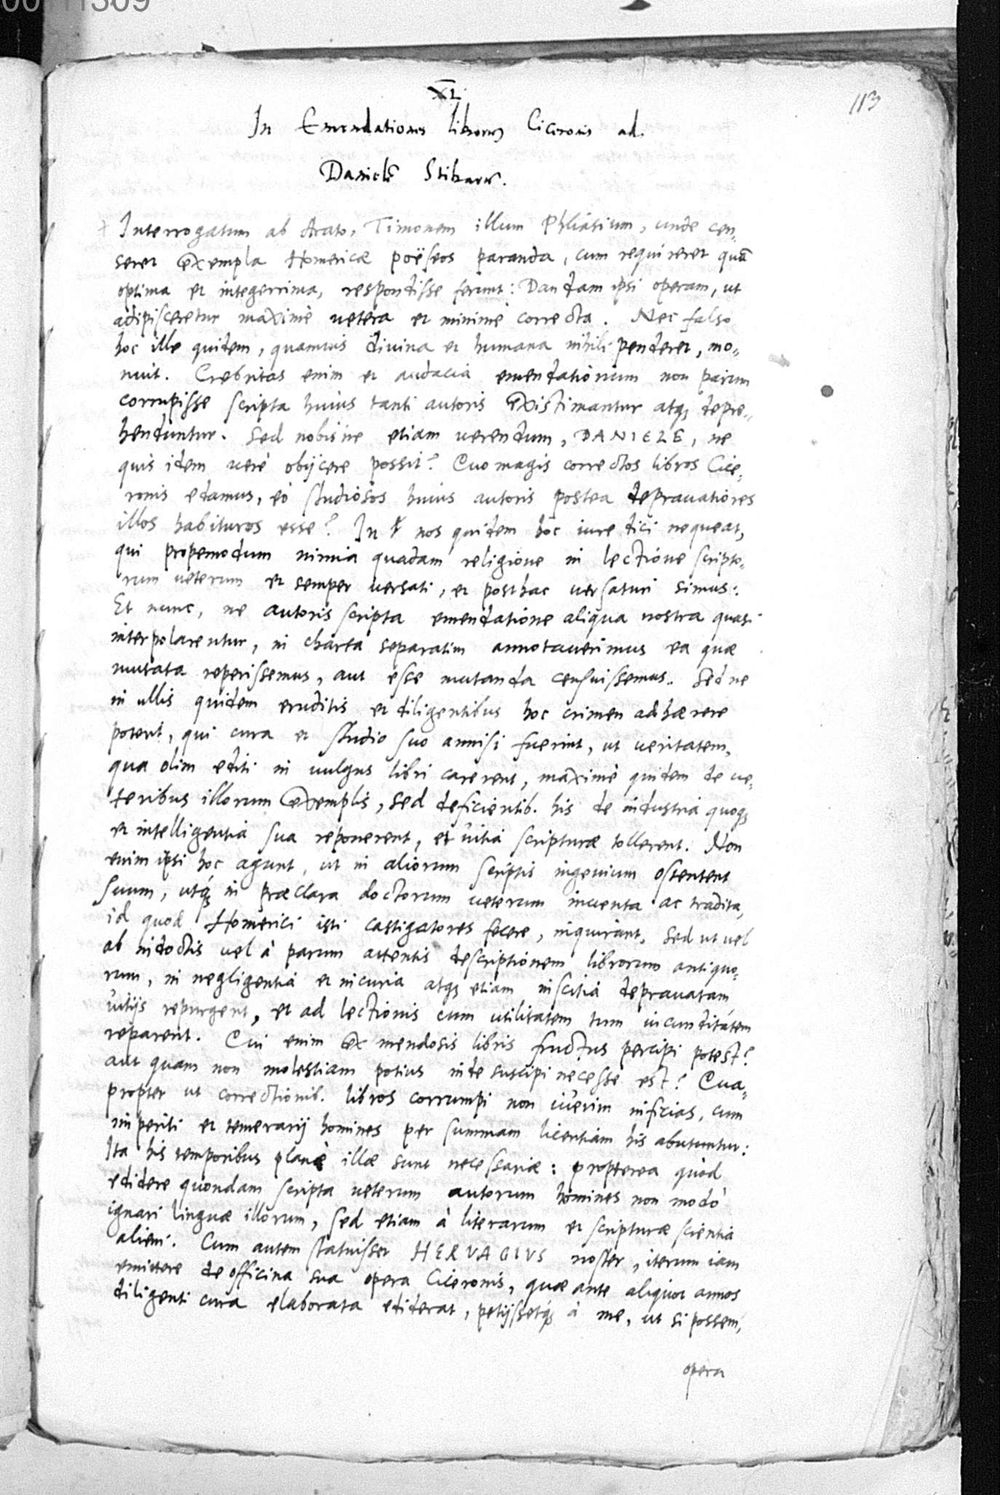 00111309
113
XL
In Emendationes librorum Ciceronis ad
Danielē Stibarū.
Interrogatum ab Arato, Timonem illum Phliasium, unde cen-
seret exempla Homericæ poëseos paranda, cum requireret quā
optima et integerrima, respondisse ferunt: Dandam ipsi operam, ut
adipisceretur maximè vetera et minimè correcta. Nec falso
hoc ille quidem, quamvis divina et humana nihili penderet, mo-
nuit. Crebritas enim et audacia emendationum non parum
corrupisse scripta huius tanti autoris existimantur atq; depre-
henduntur. Sed nobisne etiam verendum, DANIELE, ne
quis idem verè obijcere possit? Quo magis correctos libros Cice-
ronis edamus, eò studiosos huius autoris postea depravatiores
illos habituros esse? In nos quidem hoc iure dici nequeat,
qui propemodum nimia quadam religione in lectione scripto-
rum veterum et semper versati, et posthac versaturi simus:
Et nunc, ne autoris scripta emendatione aliqua nostra quasi
interpolarentur, in charta separatim annotaverimus ea quæ
mutata reperissemus, aut esse mutanda censuissemus. Sed ne
in ullis quidem eruditis et diligentibus hoc crimen adhærere
poterit, qui cura et studio suo annisi fuerint, ut veritatem,
qua olim editi in vulgus libri carerent, maximè quidem de ve-
teribus illorum exemplis, sed deficientib. his de industria quoq;
et intelligentia sua reponerent, et vitia scripturæ tollerent. Non
enim ipsi hoc agunt, ut in aliorum scriptis ingenium ostentent
suum, utq; in præclara doctorum veterum inventa ac tradita,
id quod Homerici isti castigatores fecere, inquirant. Sed ut vel
ab indoctis vel à parum attentis descriptionem librorum antiquo-
rum, in negligentia et incuria atq; etiam inscitia depravatam
vitijs repurgent, et ad lectionis cum utilitatem tum iucunditatem
reparent. Cui enim ex mendosis libris fructus percipi potest?
aut quam non molestiam potius inde suscipi necesse est? Qua-
propter ut correctionib. libros corrumpi non iverim inficias, cum
imperiti et temerarij homines per summam licentiam his abutuntur:
Ita his temporibus planè illæ sunt necessariæ: propterea quòd
edidere quondam scripta veterum autorum homines non modò
ignari linguæ illorum, sed etiam à literarum et scripturæ scientia
alieni. Cum autem statuisset HERVAGIUS noster, iterum iam
emittere de officina sua opera Ciceronis, quæ ante aliquot annos
diligenti cura elaborata ediderat, petijssetq; à me, ut si possem,
opera